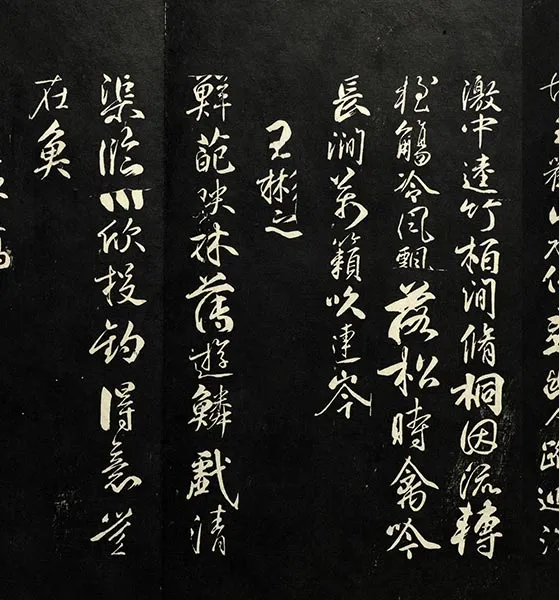 激中逵竹柏澗脩桐因流轉
輕觴冷風飄落松時禽吟
長澗萬籟吹連岑
王彬之
鮮葩映林薄遊鱗戲清
渠臨川欣投釣得意豈
在魚